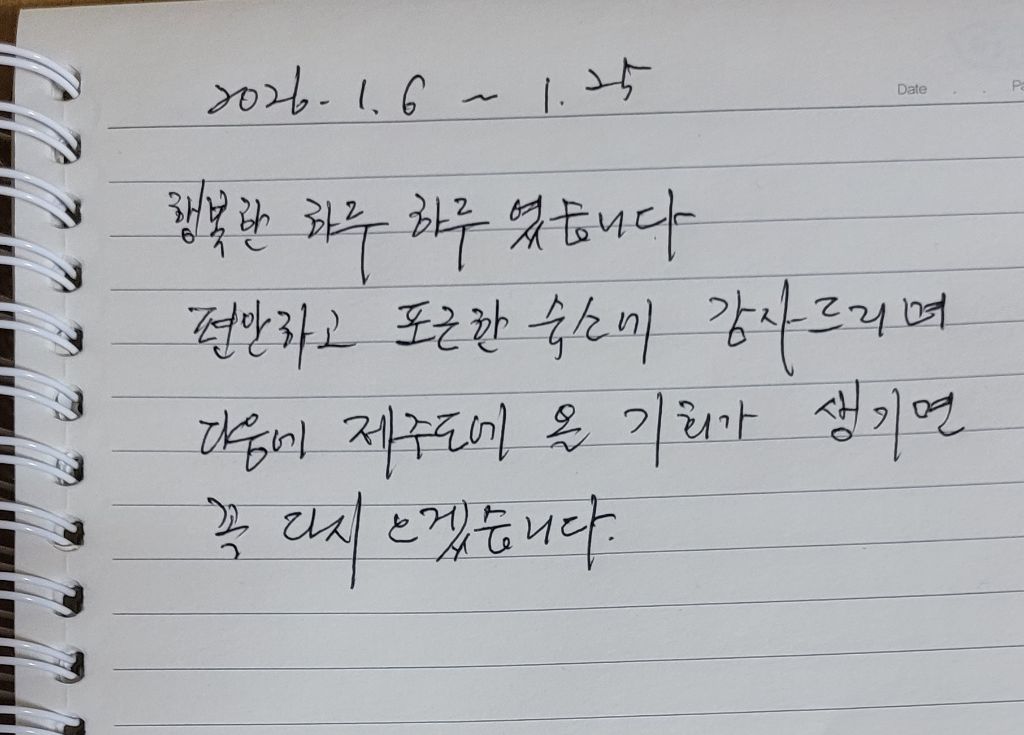 2026. 1. 6 ~ 1. 25
Date . . Pa
행복한 하루 하루 였습니다
편안하고 포근한 숙소에 감사드리며
다음에 제주도에 올 기회가 생기면
꼭 다시 오겠습니다.